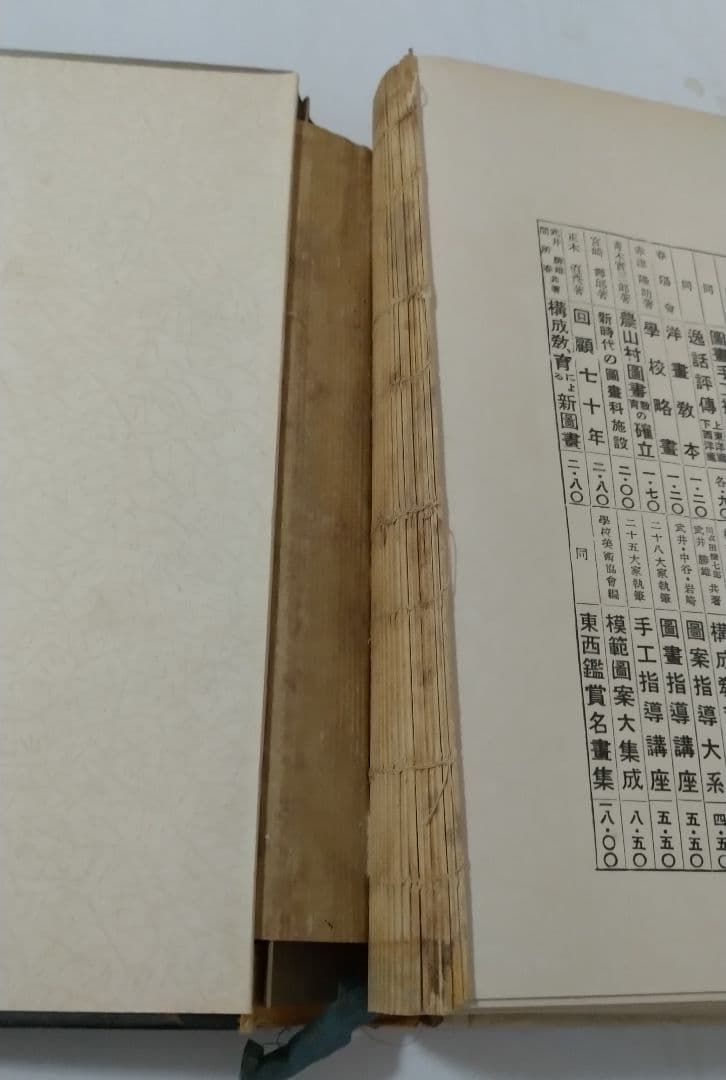 同 圖畫手工
同 逸話評傳 上東洋篇 下西洋篇 各・九〇
春陽會 洋畫教本 一・二〇
赤津隆助著 學校略畫 一・二〇
青木實三郎著 農山村圖畫教育の確立 一・七〇
宮崎 郎著 新時代の圖畫科施設 二・〇〇
正木直彥著 回顧七十年 二・八〇
武井勝雄 間所春 共著 構成教育による新圖畫 二・八〇
武井勝雄 共著 構成教
武井・中谷・岩崎 圖案指導大系 四・五〇
二十八大家執筆 圖畫指導講座 五・五〇
二十五大家執筆 手工指導講座 五・五〇
學校美術協會編 模範圖案大集成 八・五〇
同 東西鑑賞名畫集 一八・〇〇